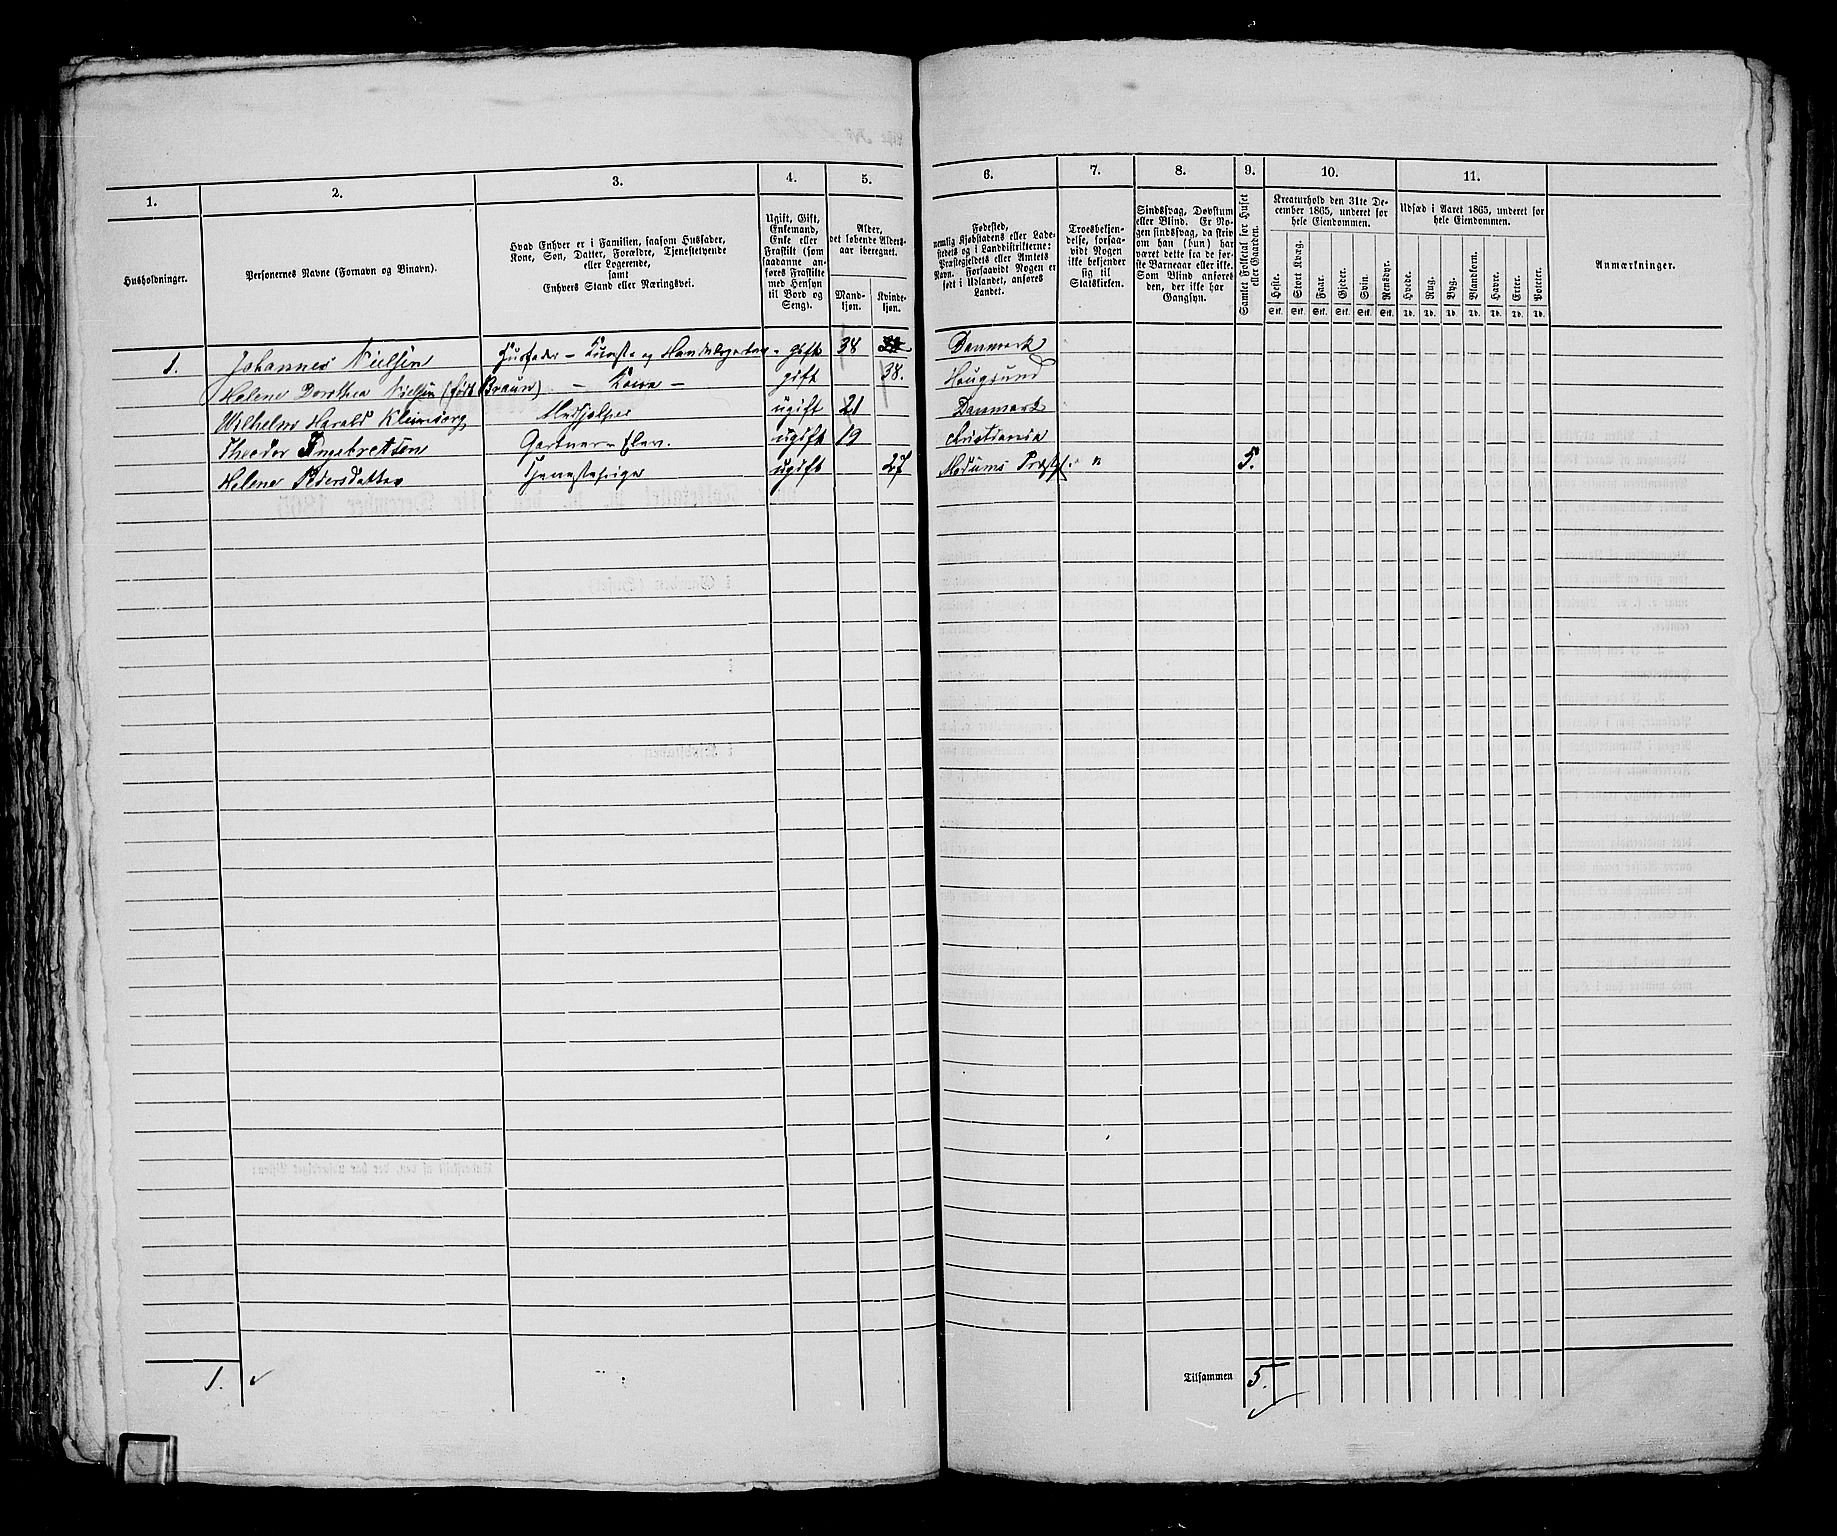 1. 2. 3. 4. 5. 6. 7. 8. 9. 10. 11.
Husholdninger.
Personernes Navne (Fornavn og Binavn).
Hvad Enhver er i Familien, saasom Husfader,
Kone, Søn, Datter, Forældre, Tjenestetyende
eller Logerende,
samt
Enhvers Stand eller Næringsvei.
Ugift, Gift,
Enkemand,
Enke eller
Fraskilt (som
saadanne an-
føres Fraskilte
med Hensyn
til Bord og
Seng).
Alder,
det løbende Alders-
aar iberegnet.
Mand-
kjøn.
Kvinde-
kjøn.
Fødested,
nemlig Kjøbstadens eller Lade-
stedets og i Landdistrikterne:
Præstegjeldets eller Amtets
Navn. Forsaavidt Nogen er
født i Udlandet, anføres
Landet.
Troesbekjen-
delse, forsaa-
vidt Nogen
ikke bekjender
sig til
Statskirken.
Sindssvag, Døvstum
eller Blind. Er No-
gen sindssvag, da skriv
om han (hun) har
været dette fra de før-
ste Barneaar eller ikke.
Som Blind anføres
den, der ikke har
Gangsyn.
Samlet Folketal for Huset
eller Gaarden.
Kreaturhold den 31te De-
cember 1865, underet for
hele Eiendommen.
Heste. Stort Kvæg. Faar. Gjeder. Svin. Rensdyr.
Stk. Stk. Stk. Stk. Stk. Stk.
Udsæd i Aaret 1865, underet for
hele Eiendommen.
Hvede. Rug. Byg. Blandkorn. Havre. Erter. Poteter.
Td. Td. Td. Td. Td. Td. Td.
Anmærkninger.
1. Johannes Nielsen Husfader – Kunst og Handelsgartner – gift 38 Danmark
Helene Dorothea Nielsen (født Braun) – Kone – gift 38. Hougsund
Wilhelm Harald Kleinsorg Medhjelper ugift 21 Danmark
Theodor Ingebretsen Gartner – Elev. ugift 19 Christiania
Helene Pedersdatter Tjenestepige ugift 27 Modums Præstgj. " 5.
1. Tilsammen 5.